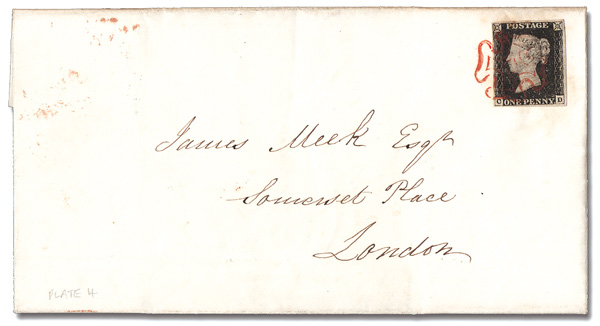 POSTAGE
C ONE PENNY D
James Meek Esqr
Somerset Place
London
PLATE 4